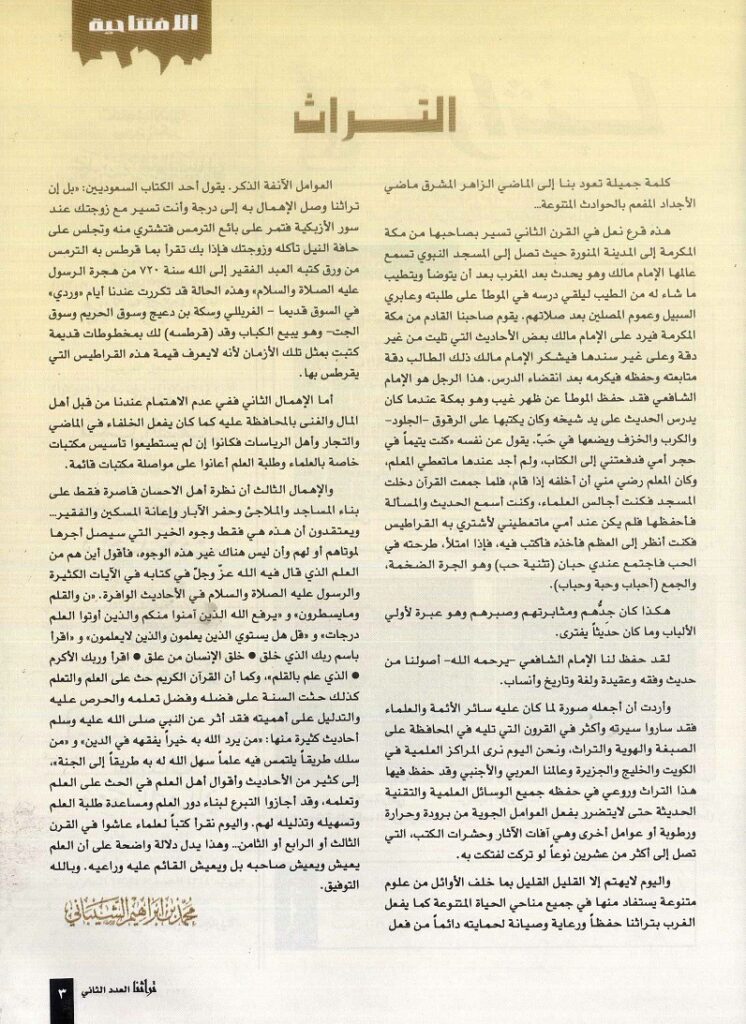 الافتتاحية
التراث
كلمة جميلة تعود بنا إلى الماضي الزاهر المشرق ماضي
الأجداد المفعم بالحوادث المتنوعة...
هذه قرع نعل في القرن الثاني تسير بصاحبها من مكة
المكرمة إلى المدينة المنورة حيث تصل إلى المسجد النبوي تسمع
عالمها الإمام مالك وهو يحدث بعد المغرب بعد أن يتوضأ ويتطيب
ما شاء له من الطيب ليلقي درسه في الموطأ على طلبته وعابري
السبيل وعموم المصلين بعد صلاتهم. يقوم صاحبنا القادم من مكة
المكرمة فيرد على الإمام مالك بعض الأحاديث التي تليت من غير
دقة وعلى غير سندها فيشكر الإمام مالك ذلك الطالب دقة
متابعته وحفظه فيكرمه بعد انقضاء الدرس. هذا الرجل هو الإمام
الشافعي فقد حفظ الموطأ عن ظهر غيب وهو بمكة عندما كان
يدرس الحديث على يد شيخه وكان يكتبها على الرقوق -الجلود-
والكرب والخزف ويضعها في حَبّ. يقول عن نفسه «كنت يتيماً في
حجر أمي فدفعتني إلى الكتاب، ولم أجد عندها ماتعطي المعلم،
وكان المعلم رضي مني أن أخلفه إذا قام، فلما جمعت القرآن دخلت
المسجد فكنت أجالس العلماء، وكنت أسمع الحديث والمسألة
فأحفظها فلم يكن عند أمي ماتعطيني لأشتري به القراطيس
فكنت أنظر إلى العظم فآخذه فأكتب فيه، فإذا امتلأ، طرحته في
الحب فاجتمع عندي حبان (تثنية حب) وهو الجرة الضخمة،
والجمع (أحباب وحبة وحباب).
هكذا كان جِدُّهم ومثابرتهم وصبرهم وهو عبرة لأولي
الألباب وما كان حديثاً يفترى.
لقد حفظ لنا الإمام الشافعي -يرحمه الله- أصولنا من
حديث وفقه وعقيدة ولغة وتاريخ وأنساب.
وأردت أن أجعله صورة لما كان عليه سائر الأئمة والعلماء
فقد ساروا سيرته وأكثر في القرون التي تليه في المحافظة على
الصبغة والهوية والتراث، ونحن اليوم نرى المراكز العلمية في
الكويت والخليج والجزيرة وعالمنا العربي والأجنبي وقد حفظ فيها
هذا التراث وروعي في حفظه جميع الوسائل العلمية والتقنية
الحديثة حتى لايتضرر بفعل العوامل الجوية من برودة وحرارة
ورطوبة أو عوامل أخرى وهي آفات الآثار وحشرات الكتب، التي
تصل إلى أكثر من عشرين نوعاً لو تركت لفتكت به.
واليوم لايهتم إلا القليل القليل بما خلف الأوائل من علوم
متنوعة يستفاد منها في جميع مناحي الحياة المتنوعة كما يفعل
الغرب بتراثنا حفظاً ورعاية وصيانة لحمايته دائماً من فعل
العوامل الآنفة الذكر. يقول أحد الكتاب السعوديين: «بل إن
تراثنا وصل الإهمال به إلى درجة وأنت تسير مع زوجتك عند
سور الأزبكية فتمر على بائع الترمس فتشتري منه وتجلس على
حافة النيل تأكله وزوجتك فإذا بك تقرأ بما قرطس به الترمس
من ورق كتبه العبد الفقير إلى الله سنة ٧٢٠ من هجرة الرسول
عليه الصلاة والسلام» وهذه الحالة قد تكررت عندنا أيام «وردي»
في السوق قديما - الغربللي وسكة بن دعيج وسوق الحريم وسوق
الجت- وهو يبيع الكباب وقد (قرطسه) لك بمخطوطات قديمة
كتبت بمثل تلك الأزمان لأنه لايعرف قيمة هذه القراطيس التي
يقرطس بها.
أما الإهمال الثاني ففي عدم الاهتمام عندنا من قبل أهل
المال والغنى بالمحافظة عليه كما كان يفعل الخلفاء في الماضي
والتجار وأهل الرياسات فكانوا إن لم يستطيعوا تأسيس مكتبات
خاصة بالعلماء وطلبة العلم أعانوا على مواصلة مكتبات قائمة.
والإهمال الثالث أن نظرة أهل الاحسان قاصرة فقط على
بناء المساجد والملاجئ وحفر الآبار وإعانة المسكين والفقير...
ويعتقدون أن هذه هي فقط وجوه الخير التي سيصل أجرها
لموتاهم أو لهم وأن ليس هناك غير هذه الوجوه، فأقول أين هم من
العلم الذي قال فيه الله عزّ وجلّ في كتابه في الآيات الكثيرة
والرسول عليه الصلاة والسلام في الأحاديث الوافرة. «ن والقلم
ومايسطرون» و «يرفع الله الذين آمنوا منكم والذين أوتوا العلم
درجات» و «قل هل يستوي الذين يعلمون والذين لايعلمون» و «اقرأ
باسم ربك الذي خلق • خلق الإنسان من علق • اقرأ وربك الأكرم
• الذي علم بالقلم»، وكما أن القرآن الكريم حث على العلم والتعلم
كذلك حثت السنة على فضله وفضل تعلمه والحرص عليه
والتدليل على أهميته فقد أثر عن النبي صلى الله عليه وسلم
أحاديث كثيرة منها: «من يرد الله به خيراً يفقهه في الدين» و «من
سلك طريقاً يلتمس فيه علماً سهل الله له به طريقاً إلى الجنة»،
إلى كثير من الأحاديث وأقوال أهل العلم في الحث على العلم
وتعلمه، وقد أجازوا التبرع لبناء دور العلم ومساعدة طلبة العلم
وتسهيله وتذليله لهم. واليوم نقرأ كتباً لعلماء عاشوا في القرن
الثالث أو الرابع أو الثامن.. وهذا يدل دلالة واضحة على أن العلم
يعيش ويعيش صاحبه بل ويعيش القائم عليه وراعيه. وبالله
التوفيق.
محمد بن ابراهيم الشيباني
تراثنا العدد الثاني
٣